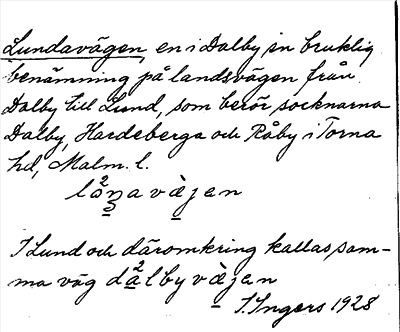 Lundavägen, en i Dalby sn bruklig
benämning på landsvägen från
Dalby till Lund, som berör socknarna
Dalby, Hardeberga och Råby i Torna
hd, Malm. l.
I Lund och däromkring kallas sam-
ma väg dålbyvæjen
I. Ingers 1928